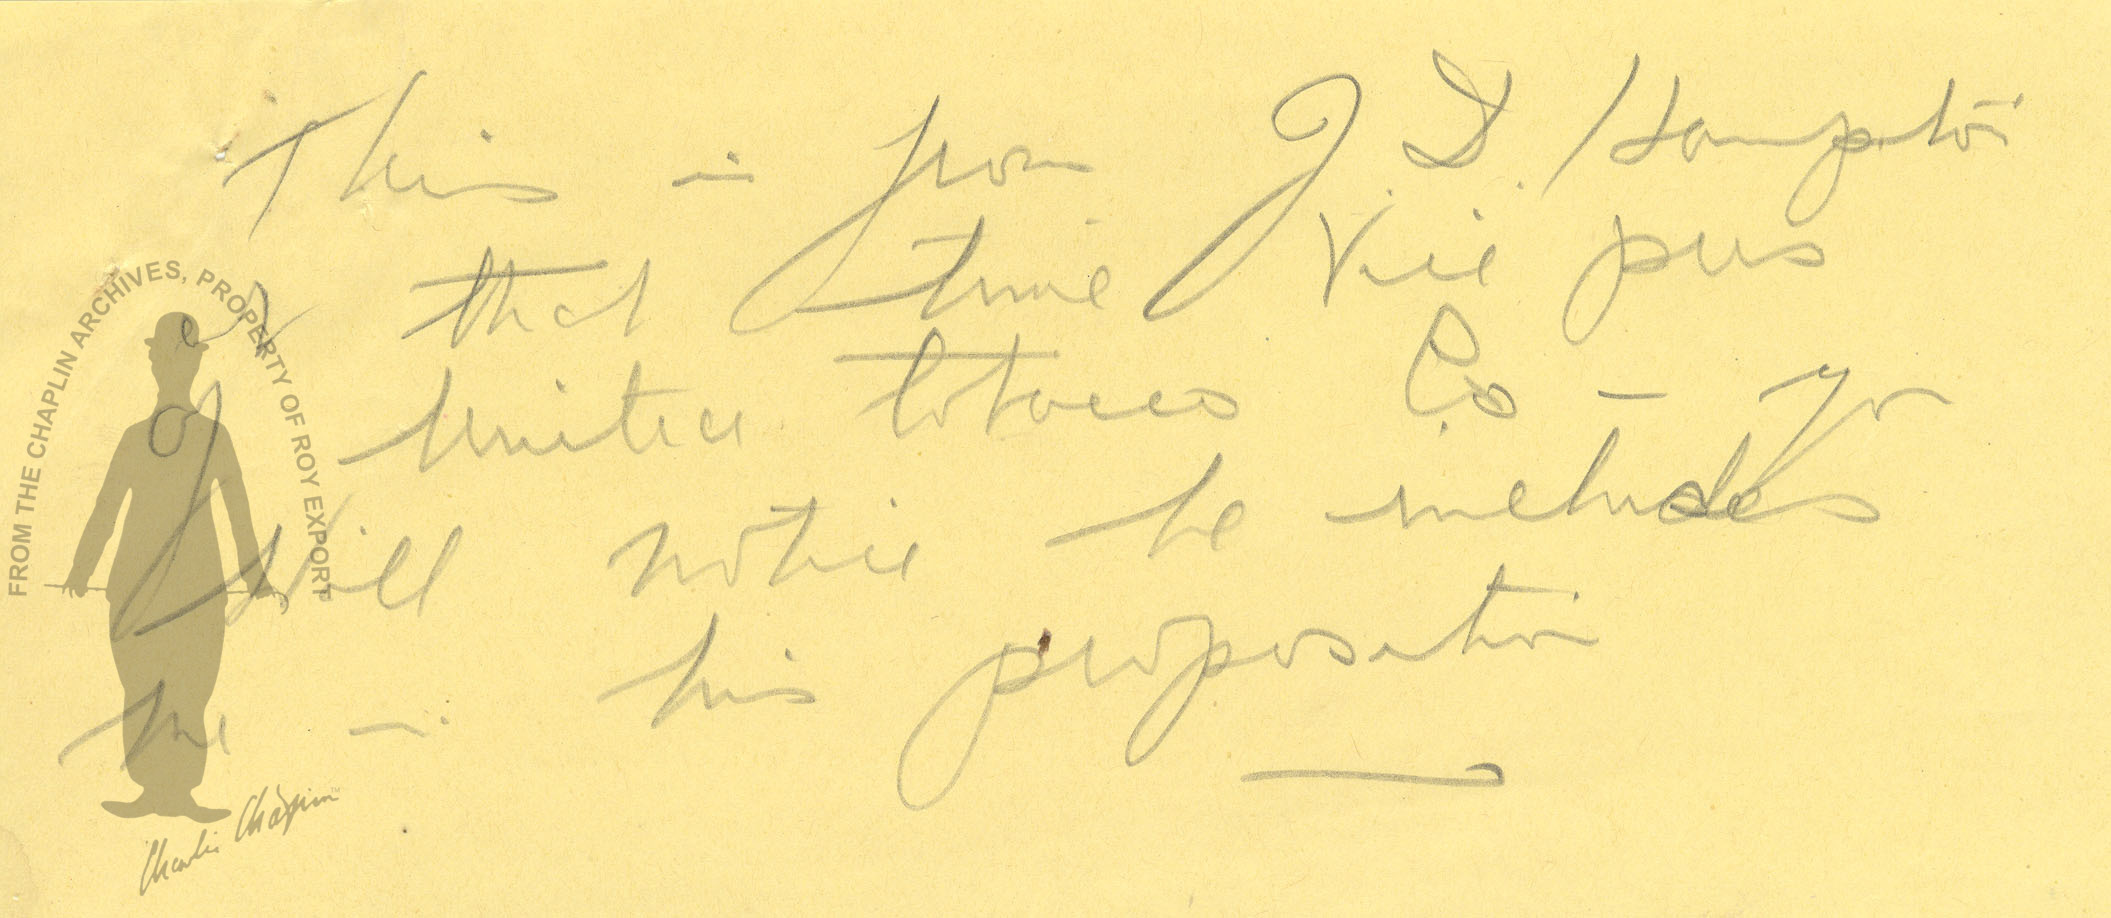 This is from J. D. Hampton
at that time Vice pres
of United Tobacco Co — you
will notice he includes
me in his proposition
FROM THE CHAPLIN ARCHIVES, PROPERTY OF ROY EXPORT
Charlie Chaplin